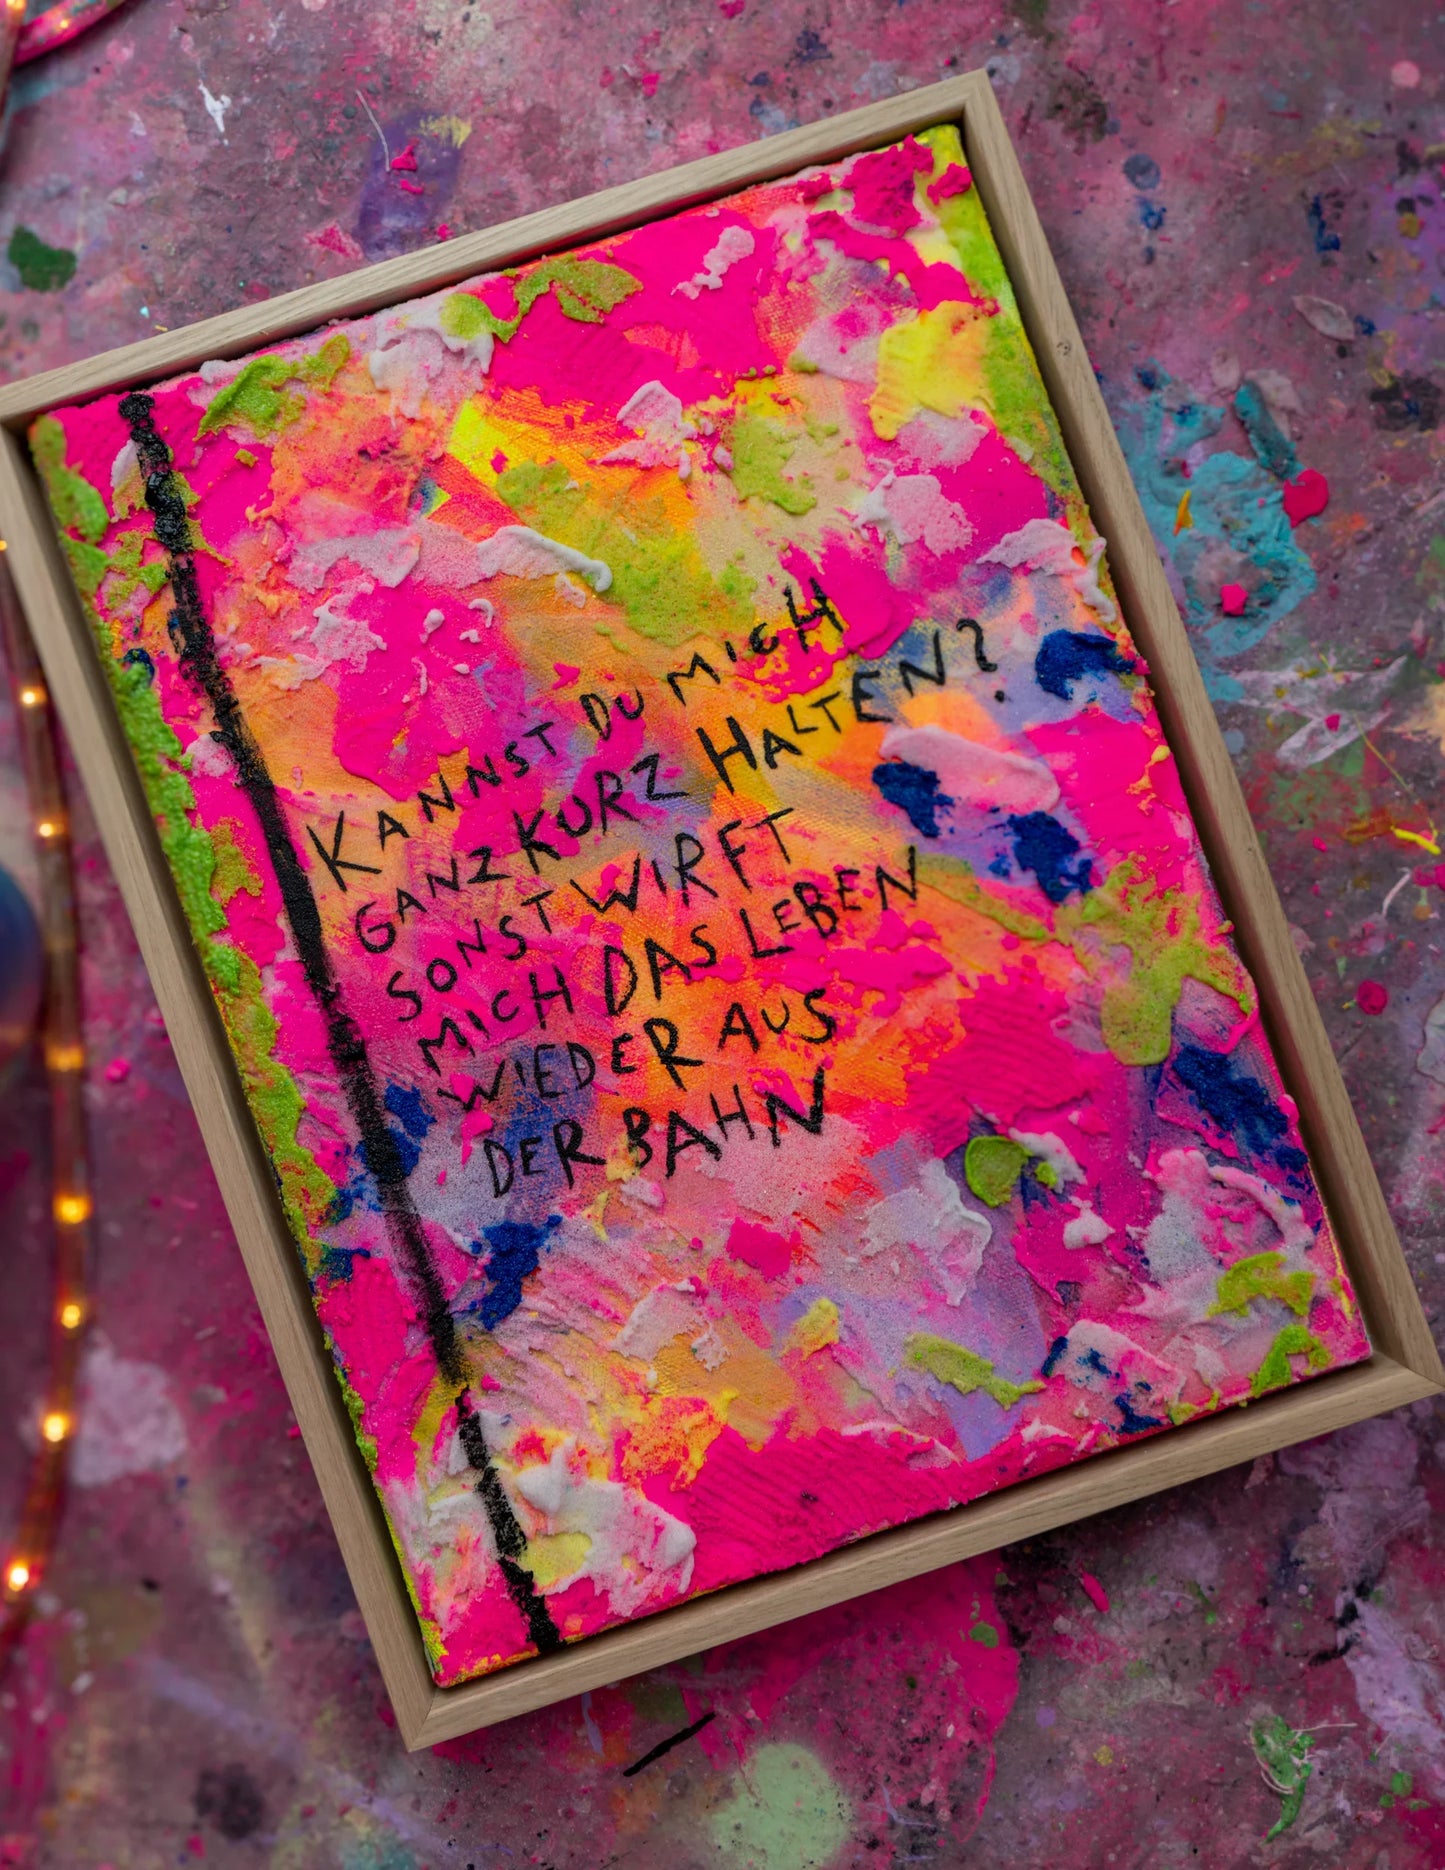 KANNST DU MICH
GANZ KURZ HALTEN?
SONST WIRFT
MICH DAS LEBEN
WIEDER AUS
DER BAHN